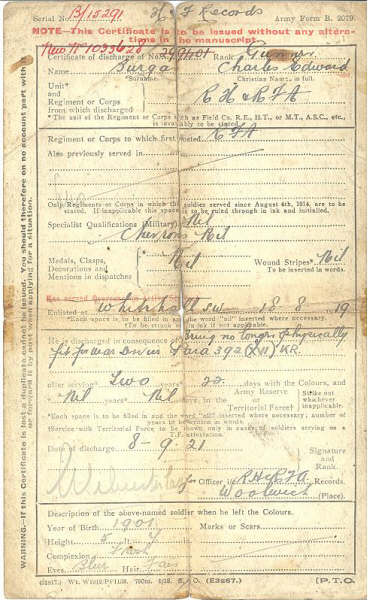 Serial No. B/15291 H F Records Army Form B. 2079.
NOTE—This Certificate is to be issued without any altera-
tions in the manuscript.
Certificate of discharge of No. Rank Gunner
Name Charles Edward
Surname. Christian Name in full.
Unit*
and
Regiment or Corps
from which discharged R H & R F A
* The unit of the Regiment or Corps such as Field Co. R.E., H.T., or M.T., A.S.C., etc.,
is invariably to be stated.
Regiment or Corps to which first posted R F A
Also previously served in
Only Regiments or Corps in which the soldier served since August 4th, 1914, are to be
stated. If inapplicable this space is to be ruled through in ink and initialled.
Specialist Qualifications (Military) Nil
Chevrons Nil
Medals, Clasps,
Decorations and
Mentions in dispatches Nil Wound Stripes* Nil
To be inserted in words.
Enlisted at Whitehall S.W. 18 8 19
*Each space is to be filled in and the word "nil" inserted where necessary.
He is discharged in consequence of Being no longer Physically
fit for War Service Para 392 (XVI) KR.
after serving* Two years* 22 days with the Colours, and
Nil years* Nil days in the Army Reserve or Territorial Force† Strike out whichever inapplicable.
*Each space is to be filled in and the word "nil" inserted where necessary, number of
years to be written in words.
†Service with Territorial Force to be shown only in cases of soldiers serving on a
T.F. attestation.
Date of discharge 8-9-21
Signature
and
Rank.
for Officer i/c R H & R F A Records.
Woolwich (Place).
Description of the above-named soldier when he left the Colours.
Year of Birth 1901 Marks or Scars.
Height 5 ft.
Complexion Fresh
Eyes Blue Hair Fair
(P.T.O.
WARNING.—If this Certificate is lost a duplicate cannot be issued. You should therefore on no account part with it
or forward it by post when applying for a situation.